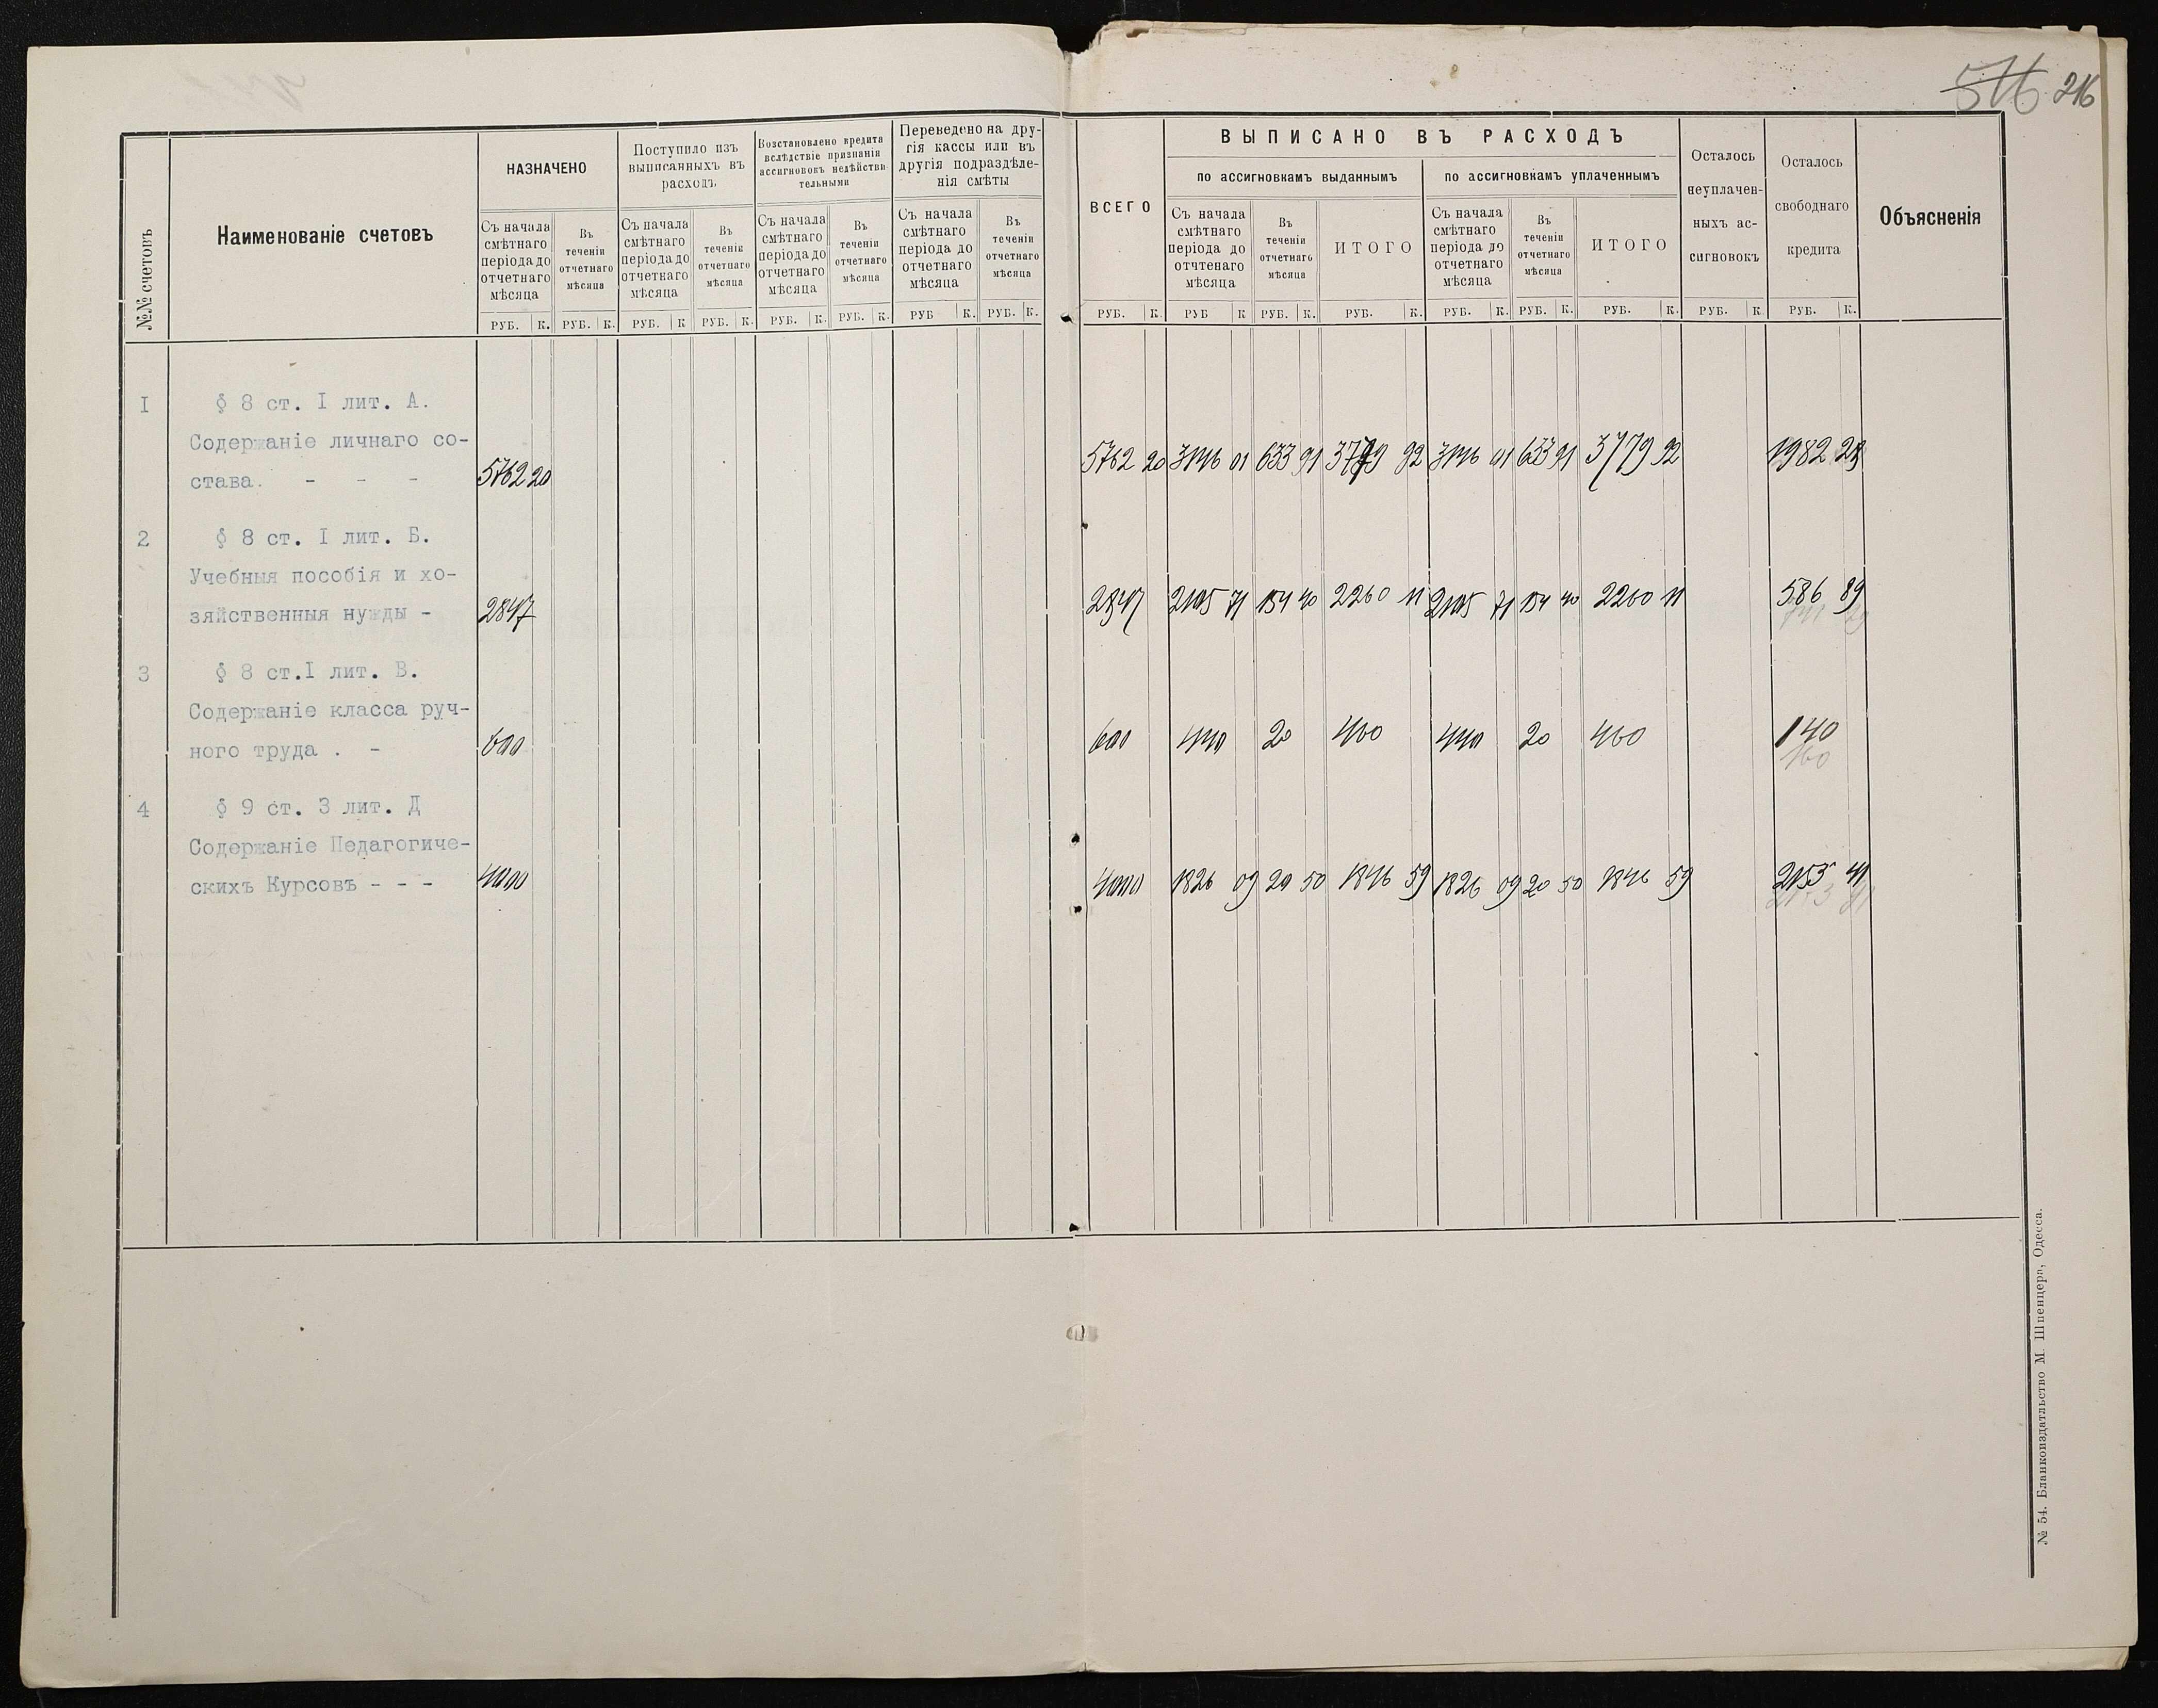 516 216
№№ счетовъ
Наименованіе счетовъ
НАЗНАЧЕНО
Съ начала
смѣтнаго
періода до
отчетнаго
мѣсяца
Въ
теченіи
отчетнаго
мѣсяца
Поступило изъ
выписанныхъ въ
расходъ
Съ начала
смѣтнаго
періода до
отчетнаго
мѣсяца
Въ
теченіи
отчетнаго
мѣсяца
Возстановлено кредита
вслѣдствіе признанія
ассигновокъ недѣйстви-
тельными
Съ начала
смѣтнаго
періода до
отчетнаго
мѣсяца
Въ
теченіи
отчетнаго
мѣсяца
Переведено на дру-
гія кассы или въ
другія подраздѣле-
нія смѣты
Съ начала
смѣтнаго
періода до
отчетнаго
мѣсяца
Въ
теченіи
отчетнаго
мѣсяца
ВСЕГО
ВЫПИСАНО ВЪ РАСХОДЪ
по ассигновкамъ выданнымъ
Съ начала
смѣтнаго
періода до
отчтенаго
мѣсяца
Въ
теченіи
отчетнаго
мѣсяца
ИТОГО
по ассигновкамъ уплаченнымъ
Съ начала
смѣтнаго
періода до
отчетнаго
мѣсяца
Въ
теченіи
отчетнаго
мѣсяца
ИТОГО
Осталось
неуплачен-
ныхъ ас-
сигновокъ
Осталось
свободнаго
кредита
Объясненія
РУБ. К. РУБ. К. РУБ. К РУБ. К. РУБ. К. РУБ. К. РУБ К. РУБ. К. РУБ. К. РУБ К РУБ. К. РУБ. К. РУБ. К. РУБ. К. РУБ. К. РУБ. К РУБ. К.
I § 8 ст. I лит. А.
Содержаніе личнаго со-
става. - - - 5762 20 5762 20 3146 01 633 91 3779 92 3146 01 633 91 3779 92 1982 28
2 § 8 ст. I лит. Б.
Учебныя пособія и хо-
зяйственныя нужды - 2847 2847 2105 71 154 40 2260 11 2105 71 154 40 2260 11 586 89
3 § 8 ст.I лит. В.
Содержаніе класса руч-
ного труда . - 600 600 440 20 460 440 20 460 140
160
4 § 9 ст. 3 лит. Д
Содержаніе Педагогиче-
скихъ Курсовъ - - - 4000 4000 1826 09 20 50 1846 59 1826 09 20 50 1846 59 2153 41
№ 54. Бланкоиздатльство М. Шпенцера, Одесса.